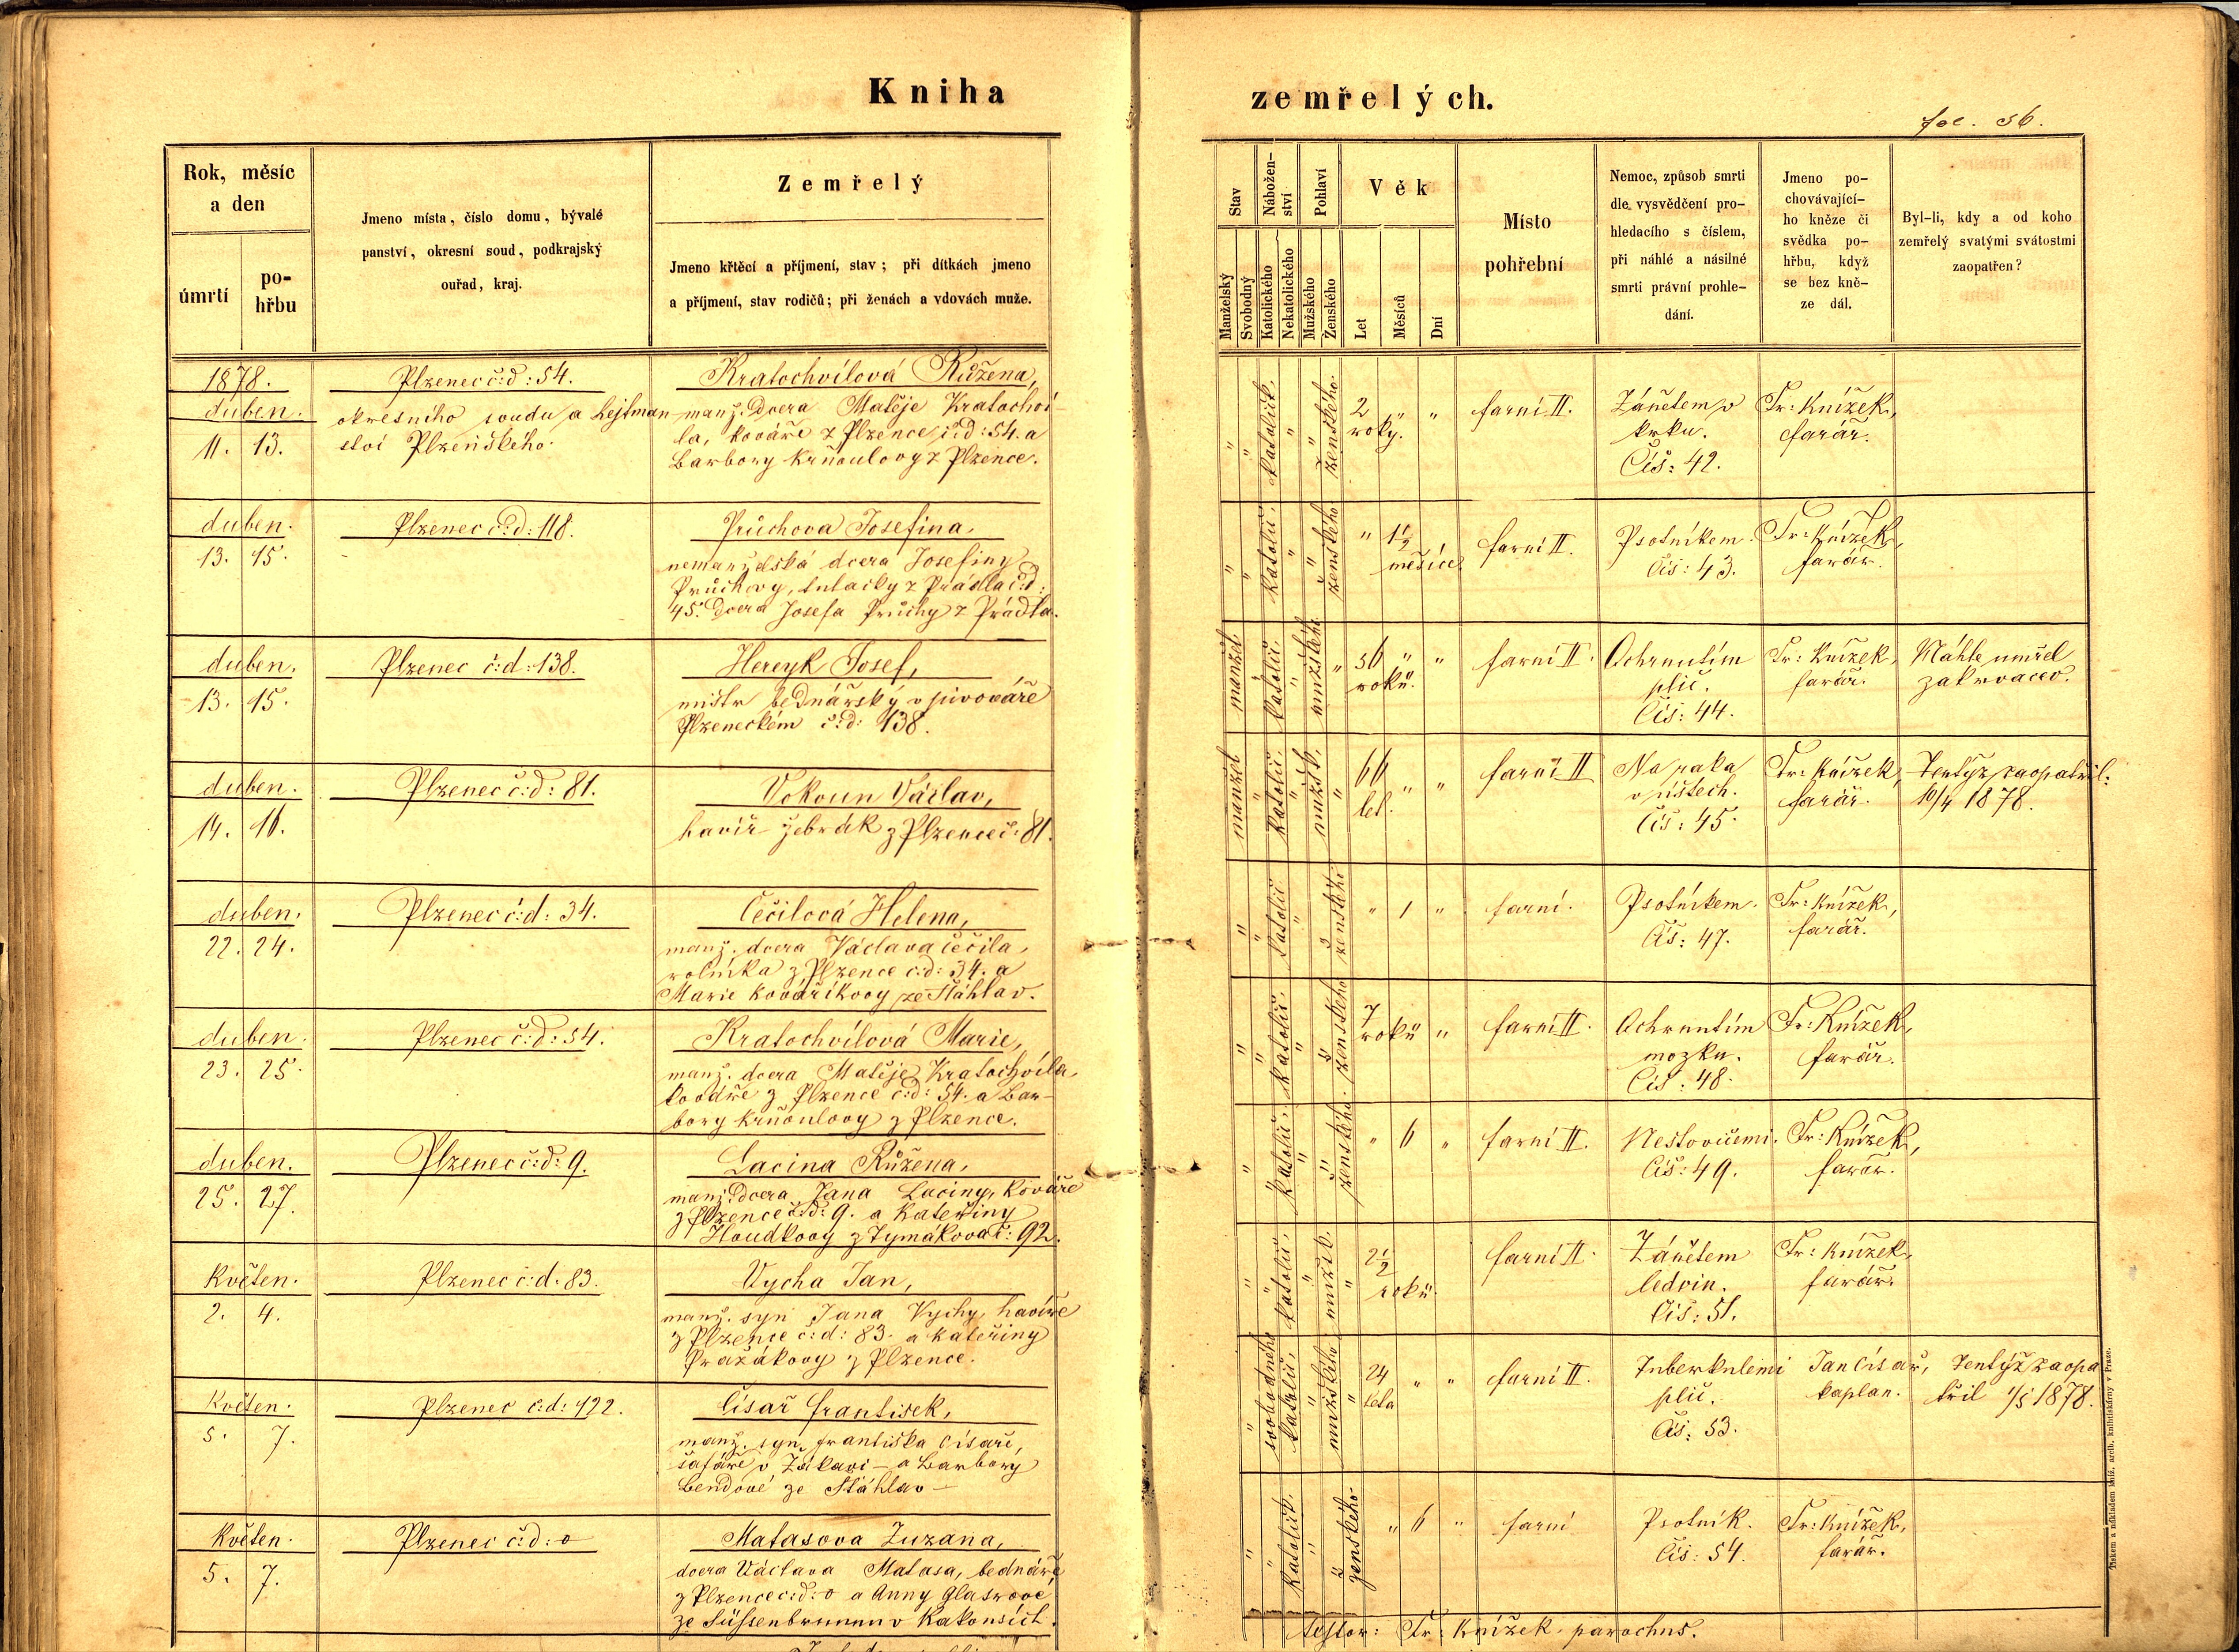 Kniha
zemřelých.
fol. 56.
Rok, měsíc
a den
úmrtí
po-
hřbu
Jmeno místa, číslo domu, bývalé
panství, okresní soud, podkrajský
ouřad, kraj.
Zemřelý
Jmeno křtěcí a příjmení, stav; při dítkách jmeno
a příjmení, stav rodičů; při ženách a vdovách muže.
Stav
Manželský
Svobodný
Nábožen-
ství
Katolického
Nekatolického
Pohlaví
Mužského
Ženského
Věk
Let
Měsíců
Dní
Místo
pohřební
Nemoc, způsob smrti
dle vysvědčení pro-
hledacího s číslem,
při náhlé a násilné
smrti právní prohle-
dání.
Jmeno po-
chovávající-
ho kněze či
svědka po-
hřbu, když
se bez kně-
ze dál.
Byl-li, kdy a od koho
zemřelý svatými svátostmi
zaopatřen?
1878.
duben.
11. 13.
Plzenec č:d: 54.
okresního soudu a hejtman-
ství Plzeňského.
Kratochvílová Růžena,
manž. dcera Matěje Kratochví-
la, kováře z Plzence č:d: 54. a
Barbory Krňoulovy z Plzence.
" " katolick. " " ženského.
2 " "
roky.
farní II.
Zánětem v
krku.
Čís: 42.
Fr: Knížek,
farář.
duben.
13. 15.
Plzenec č:d: 118.
Průchova Josefina,
nemanželská dcera Josefiny
Průchovy, z Prádla č:d:
45. dcera Josefa Průchy z Prádla.
" " katolic. " " ženského
" 1½
měsíce
farní II.
Psotníkem.
Čís: 43.
Fr: Knížek,
farář.
duben.
13. 15.
Plzenec č:d: 138.
Hereyk Josef,
mistr bednářský v pivováře
Plzeneckém č:d: 138.
manžel. " katolic. " mužského "
56 " "
roků.
farní II.
Ochrnutím
plic.
Čís: 44.
Fr: Knížek,
farář.
Náhle umřel
zakrvácev.
duben.
14. 16.
Plzenec č:d: 81.
Vokoun Václav,
havíř žebrák z Plzence č: 81.
manžel " katolic. " mužsk. "
66 " "
let.
farní II
Na raka
v ústech.
Čís: 45.
Fr: Knížek,
farář.
Tentýž zaopatřil:
10/4 1878.
duben.
22. 24.
Plzenec č:d: 34.
Čečilová Helena,
manž. dcera Václava Čečila,
rolníka z Plzence č:d: 34. a
Marie Kovaříkovy ze Šťáhlav.
" " katolic " " ženského
" 1 "
farní.
Psotníkem.
Čís: 47.
Fr: Knížek,
farář.
duben.
23. 25.
Plzenec č:d: 54.
Kratochvílová Marie,
manž. dcera Matěje Kratochvíla,
kováře z Plzence č:d: 54. a Bar-
bory Krňoulovy z Plzence.
" " katolic. " " ženského
7
roků "
farní II.
Ochrnutím
mozku.
Čís: 48.
Fr: Knížek,
farář.
duben.
25. 27.
Plzenec č:d: 9.
Lacina Růžena,
manž. dcera Jana Laciny, kováře
z Plzence č:d: 9. a Kateřiny
Houdkovy z Tymákova č: 92.
" katolic. " " ženského.
" 6 "
farní II.
Neštovicemi.
Čís: 49.
Fr: Knížek,
farář.
Květen.
2. 4.
Plzenec č:d: 83.
Vycha Jan,
manž. syn Jana Vychy, havíře
z Plzence č:d: 83. a Kateřiny
Pražákovy z Plzence.
" " katolic. " mužsk. "
2½
roků.
farní II.
Zánětem
ledvin.
Čís: 51.
Fr: Knížek,
farář.
Květen.
5. 7.
Plzenec č:d: 122.
Císař František,
manž. syn Františka Císaře,
šafáře v Zákaví – a Barbory
Bendové ze Šťáhlav –
" svobodného katolic. " mužského "
24 " "
leta
farní II.
Tuberkulemi
plic.
Čís: 53.
Jan Císař,
kaplan.
Tentýž zaopa
třil 1/5 1878.
Květen.
5. 7.
Plzenec č:d: 0
Matasova Zuzana,
dcera Václava Matasa, bednáře
z Plzence č:d: 0 a Anny Glasrové
ze Süssenbrunnu v Rakousích.
" " katolick. " " ženského.
" 6 "
farní
Psotník.
Čís: 54.
Fr: Knížek,
farář.
testor: Fr: Knížek, parochus.
Tiskem a nákladem kníž. arcib. knihtiskárny v Praze.